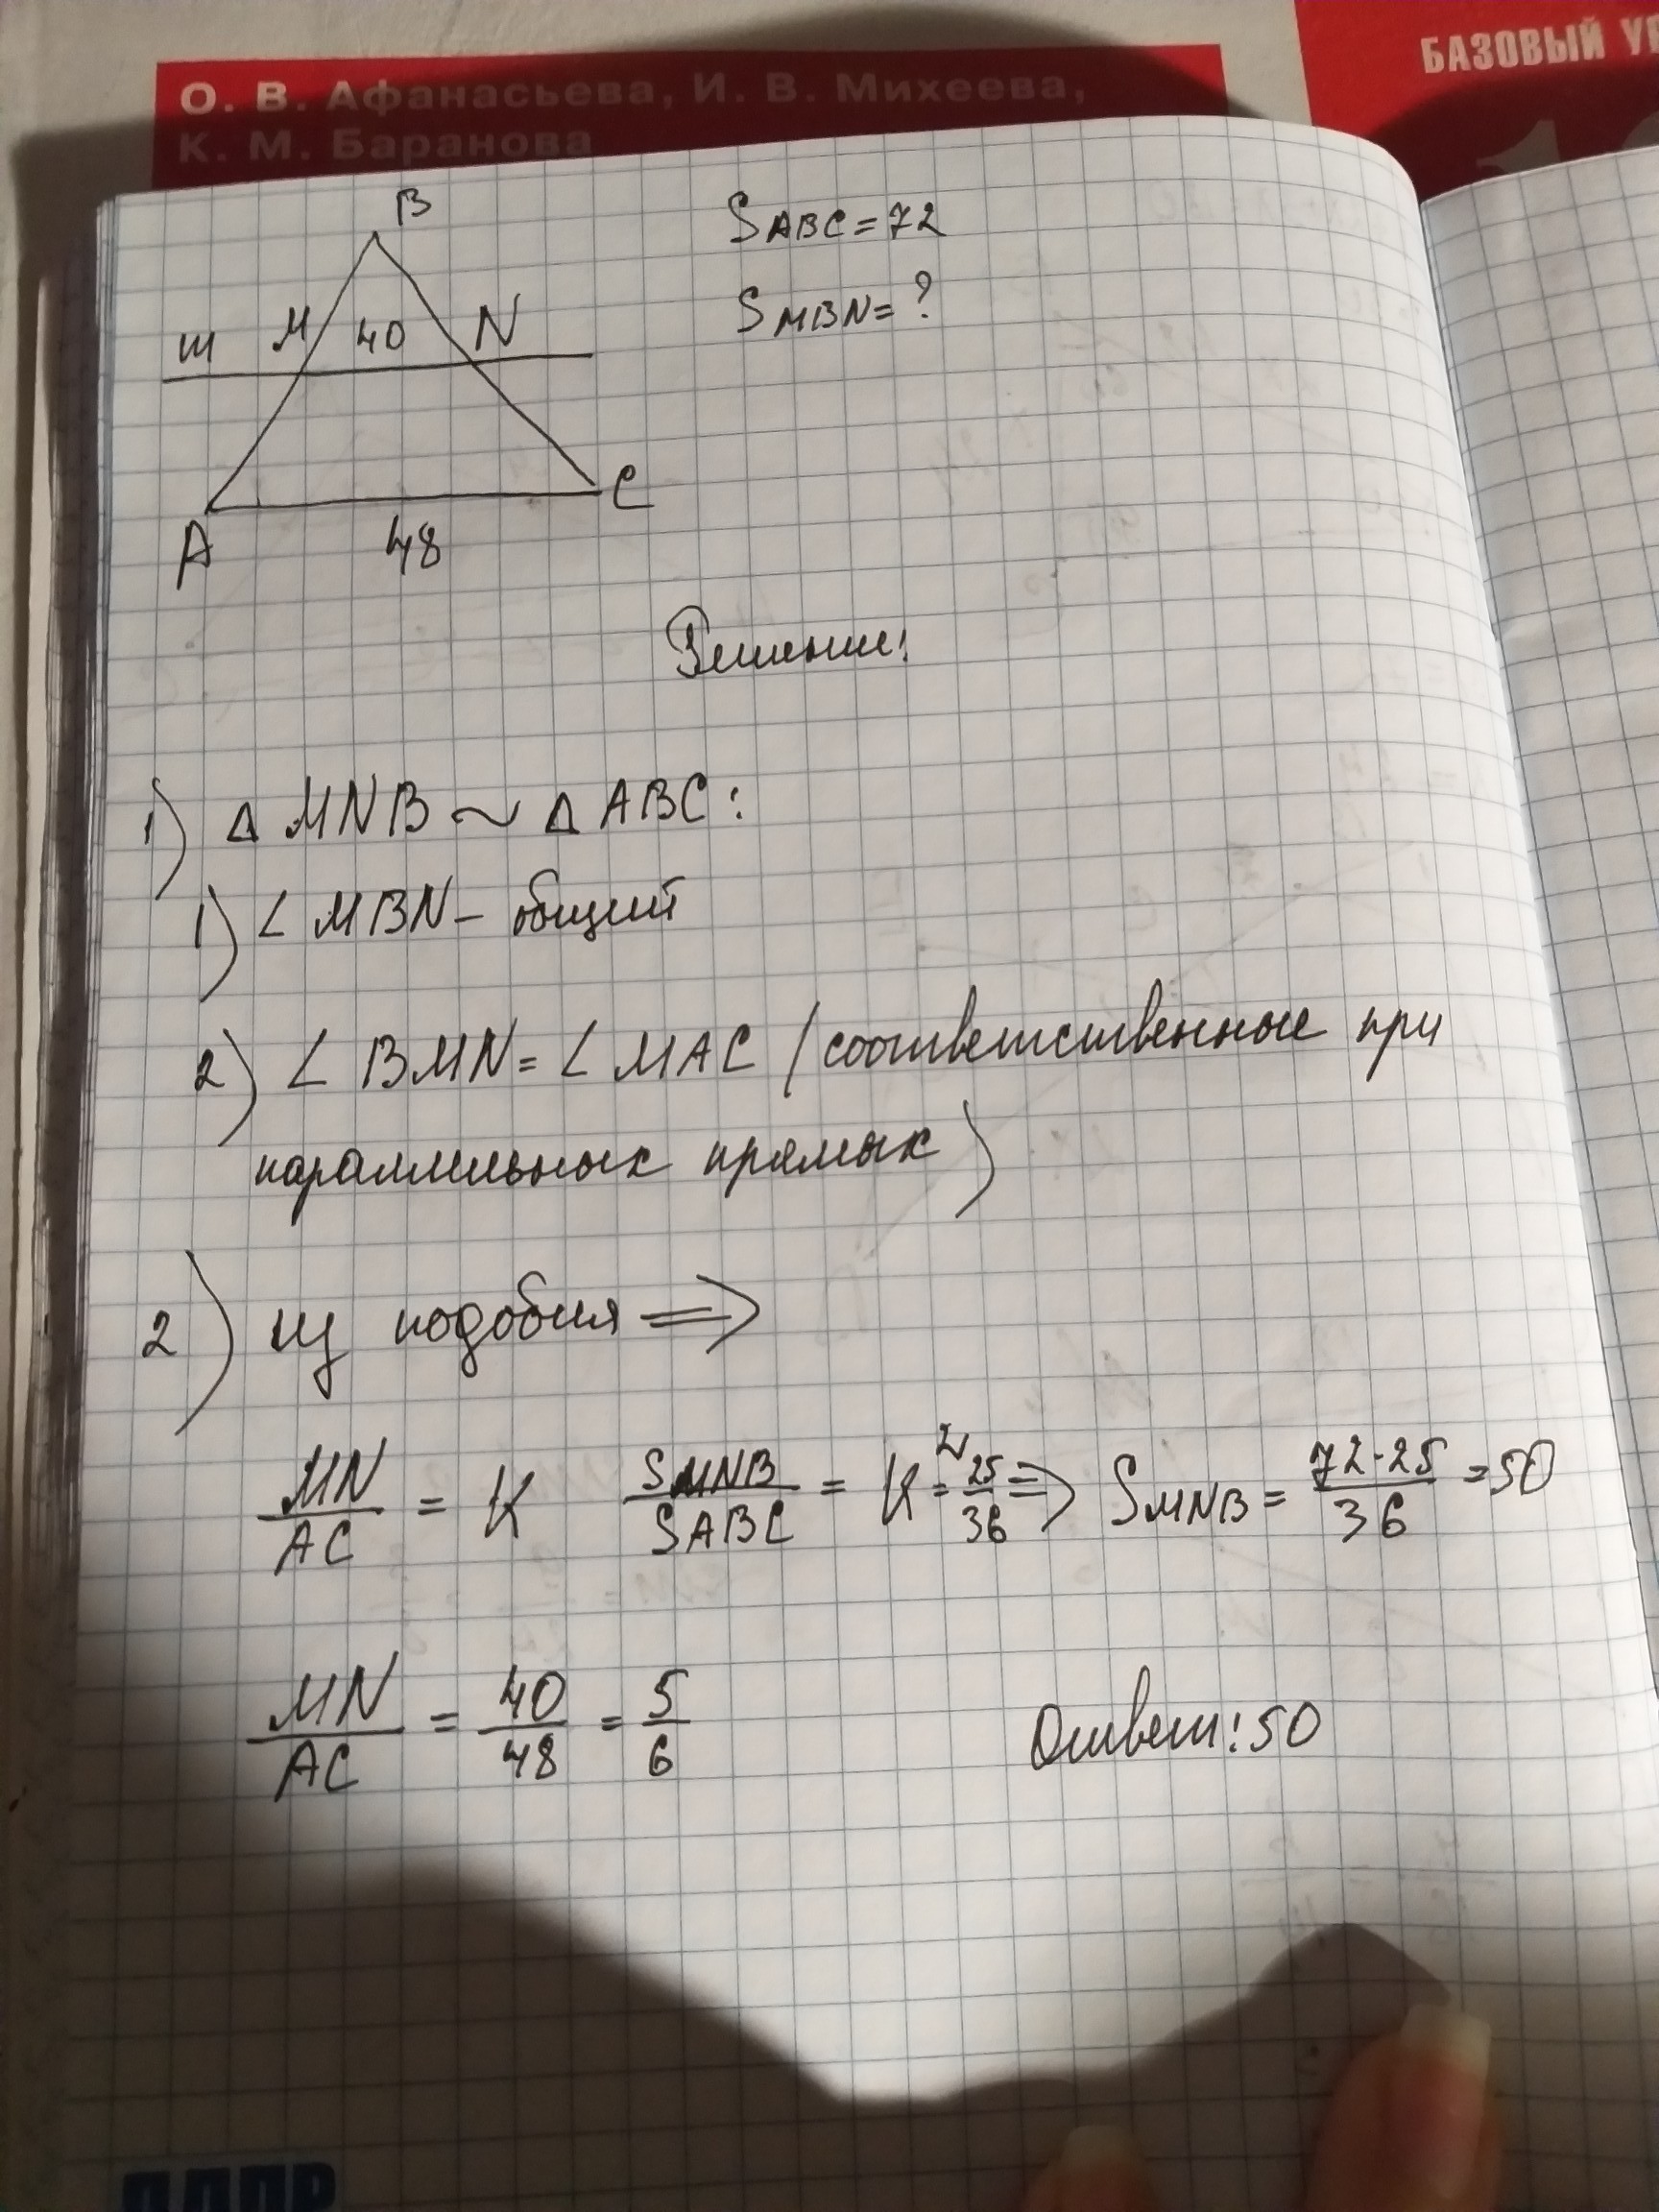 О. В. Афанасьева, И. В. Михеева,
К. М. Баранова
БАЗОВЫЙ
B
M
40
N
m
A
48
C
S ABC = 72
S MBN = ?
Решение:
1) Δ MNB ~ Δ ABC:
1) ∠ MBN - общий
2) ∠ BMN = ∠ MAC (соответственные при
параллельных прямых)
2) из подобия ⇒
MN/AC = K S MNB/S ABC = K² = 25/36 ⇒ S MNB = 72·25/36 = 50
MN/AC = 40/48 = 5/6
Ответ: 50